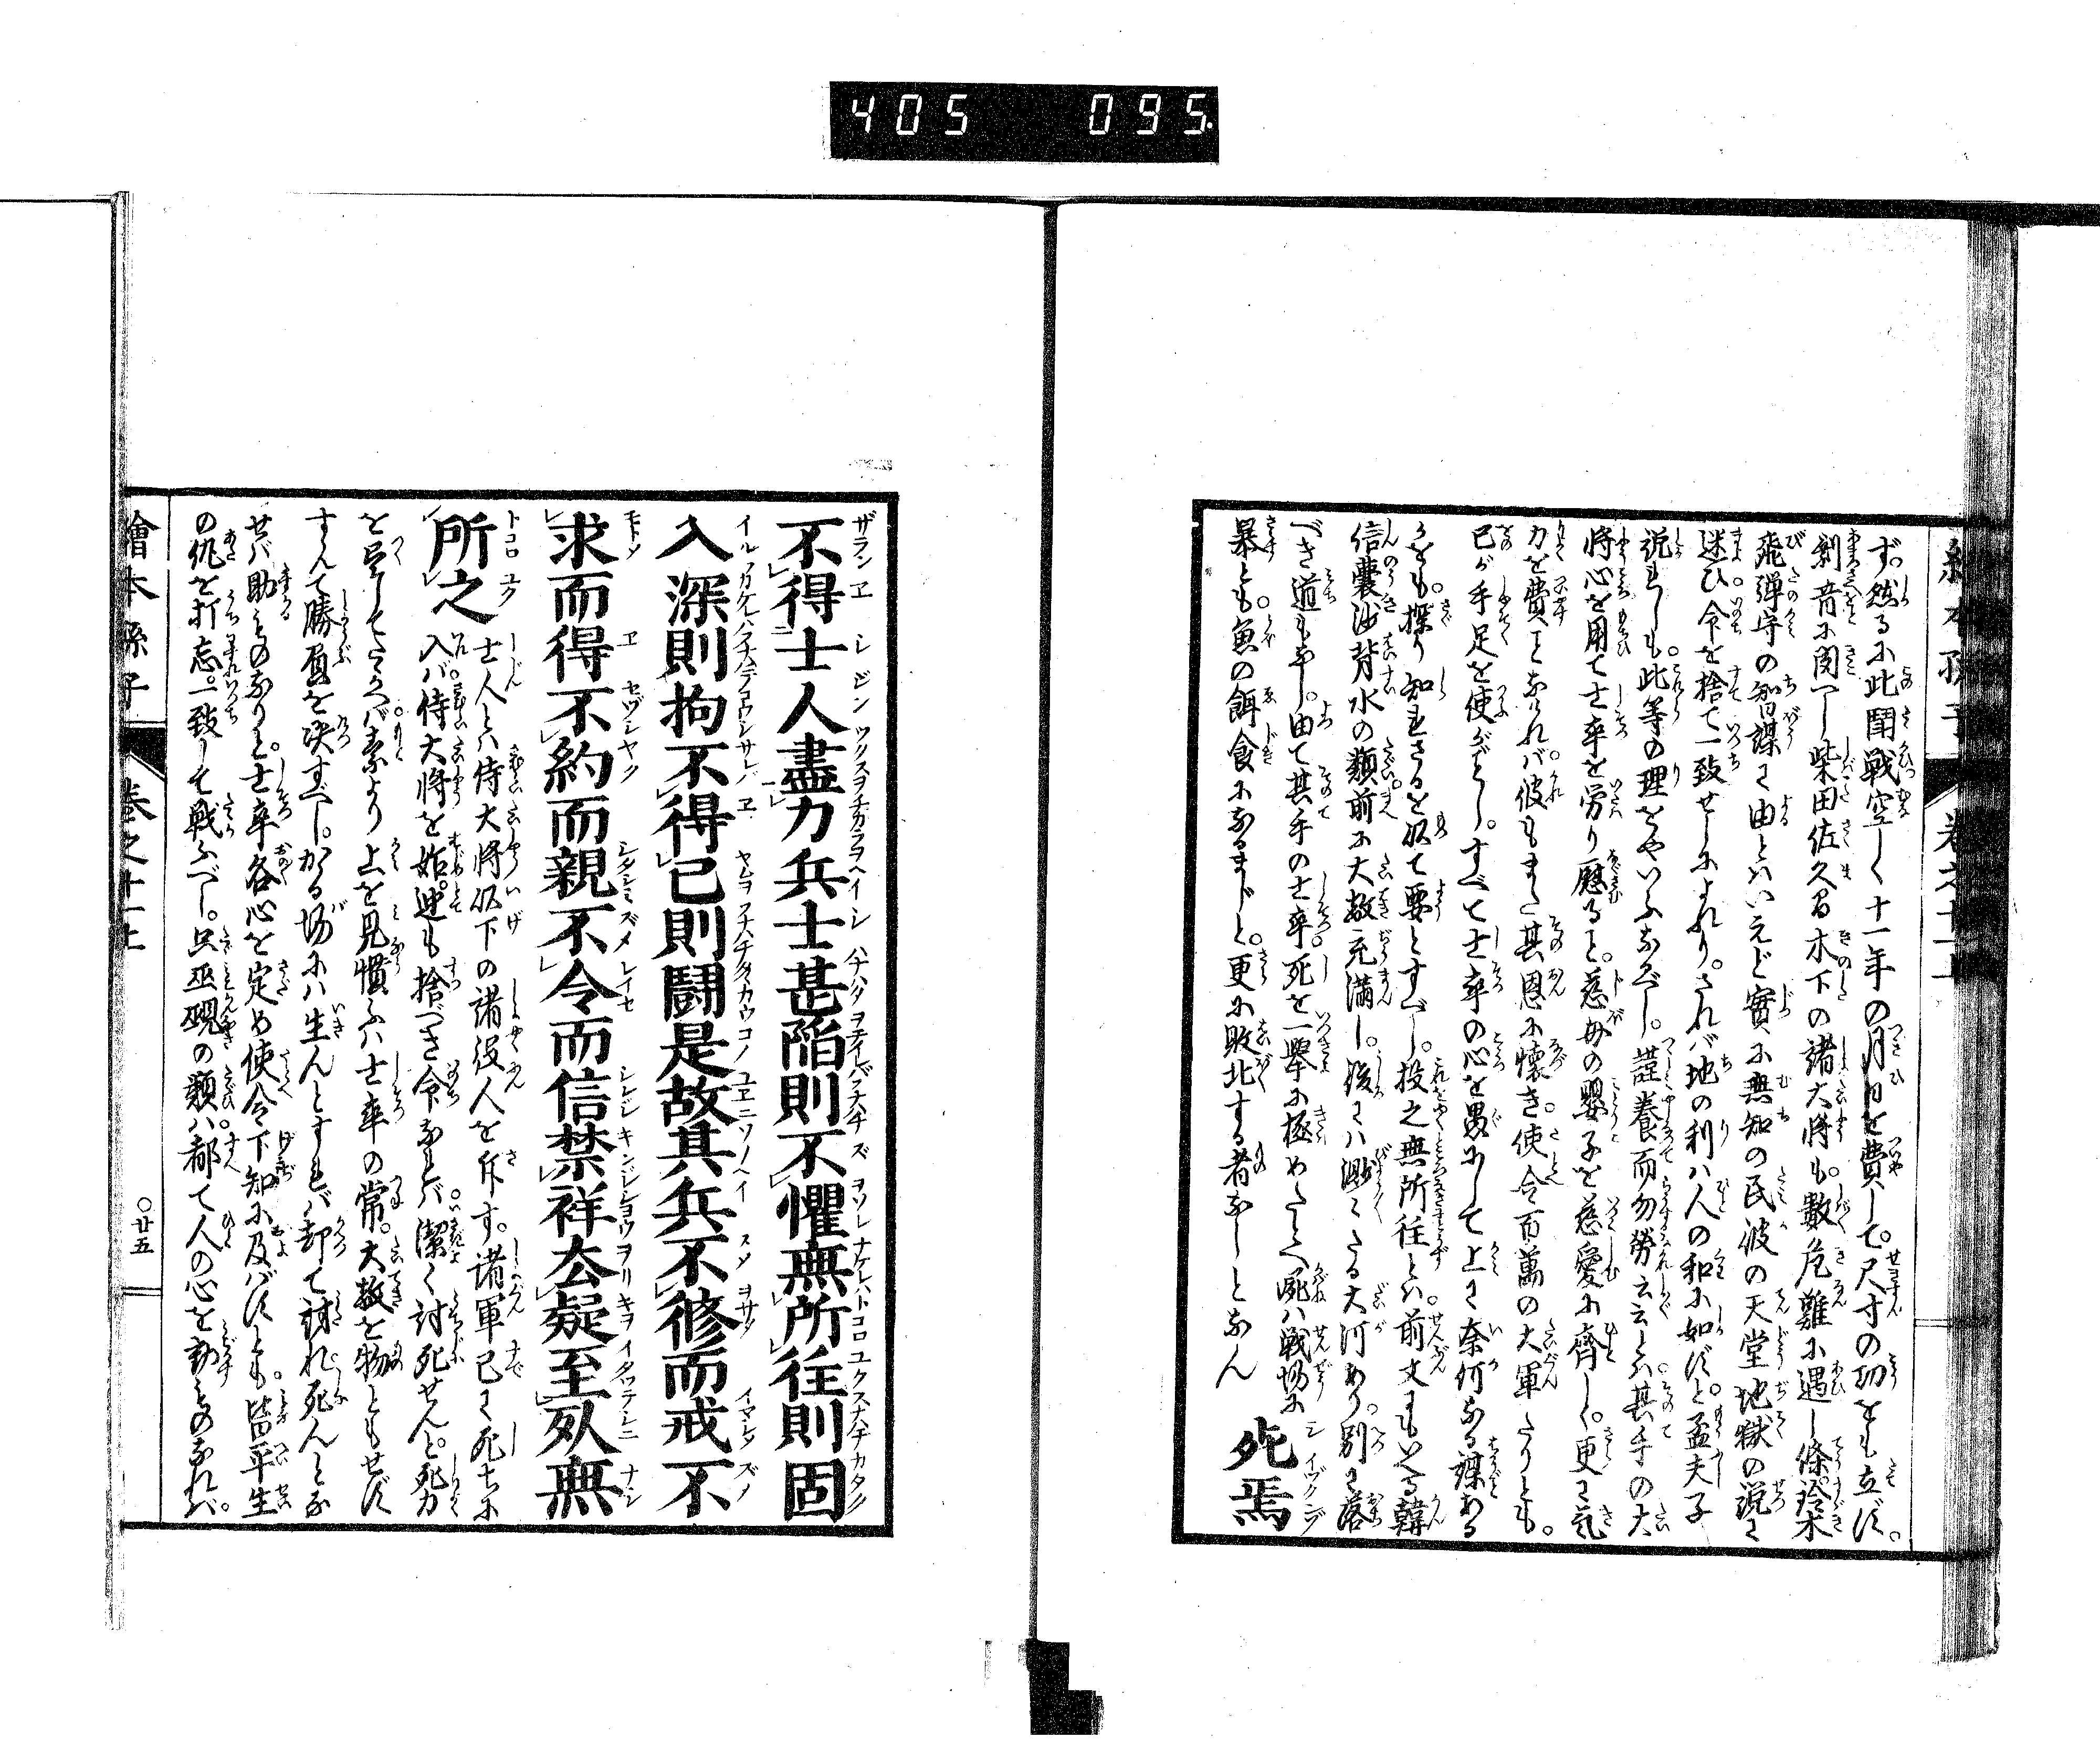 405 095.
ず。然るに此闘戦空しく十一年の月日を費して。尺寸の功をも立ず。
剃音に聞へし柴田佐久間木下の諸大将も。数危難に遇し條。鈴木
飛弾守の知謀に由とハいえど實に無知の民。彼の天堂地獄の説に
迷ひ。命を捨て一致せしによれり。されバ地の利ハ人の和に如ずと。孟夫子
説れしも。此等の理をやいふなべし。謹養而勿勞云云とハ。其手の大
将心を用て士卒を労り慰ると。慈母の嬰子を慈愛に齊しく。更に氣
力を費ことなけれバ。彼もまた其恩に懐き。使令百萬の大軍たりとも。
己が手足を使がごとし。すべて士卒の心を愚にして上に奈何なる謀ある
をも。探り知ざるを以て要とすべし。投之無所往とハ。前文にもいへる韓
信嚢沙背水の類。前に大敵充満し。後にハ渺々たる大河あり。別に落
べき道もなし。由て其手の士卒。死を一擧に極めたとへ屍ハ戦場に
暴とも。魚の餌食になるまじと。更に敗北する者なしとなん
死焉
不得士人盡力兵士甚陥則不懼無所往則固
入深則拘不得已則闘是故其兵不修而戒不
求而得不約而親不令而信禁祥去疑至死無
所之
士人とハ侍大将以下の諸役人を斥す。諸軍已に死ちに
入バ。侍大将を始。迚も捨べき命なれバ。潔く討死せんと。死力
を尽してたゝかへバ。素より上を見慣ふハ士卒の常。大敵を物ともせず
すんで勝負を決すべし。かゝる場にハ生んとすれバ却て討れ。死んとな
せバ助るものなりと。士卒各心を定め使令下知に及バずとも。皆平生
の仇を打忘。一致して戦ふべし。只巫覡の類ハ。都て人の心を動ものなれバ。
繪本孫子 巻之十上
〇廿五